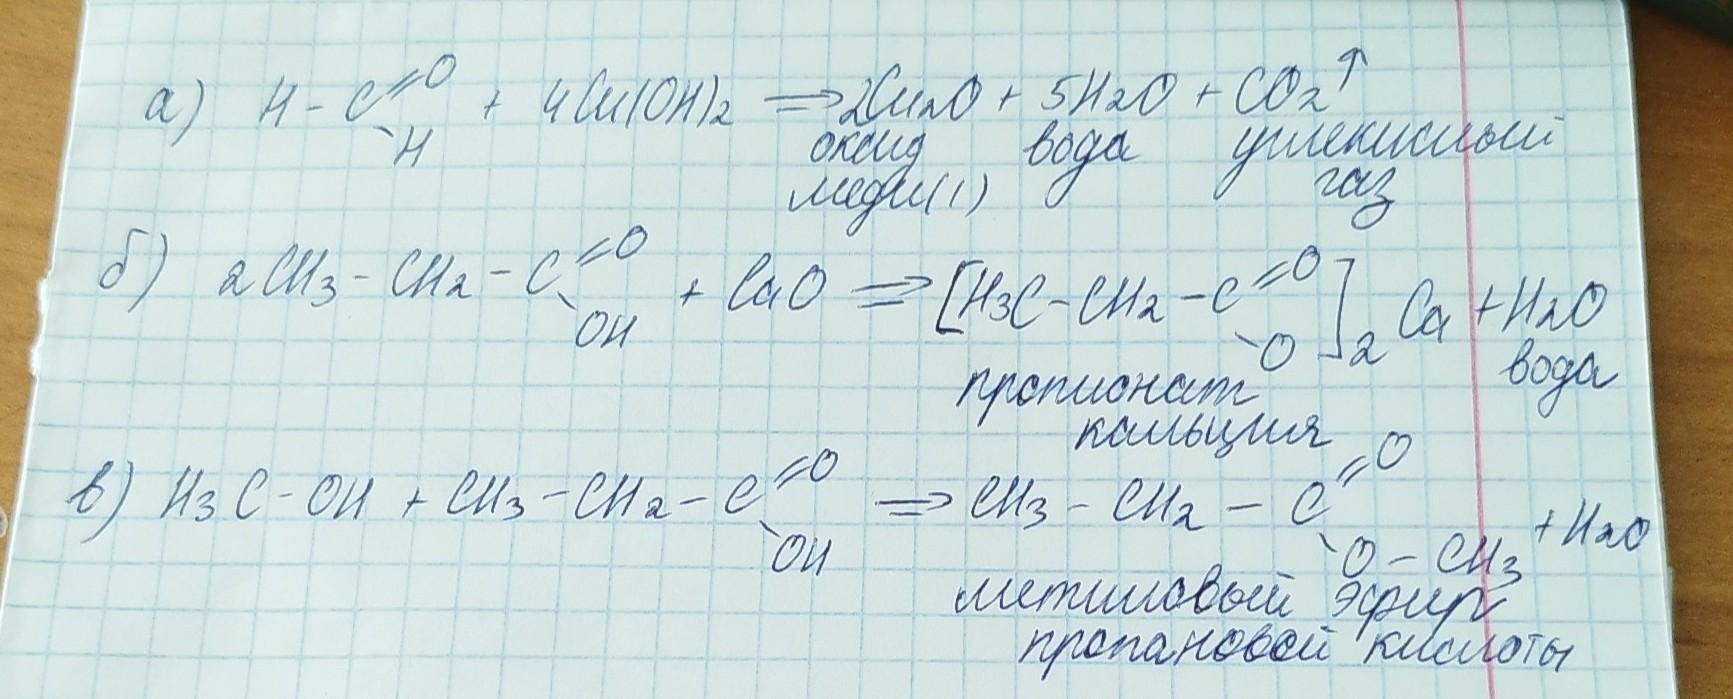 а) H - C =O - H + 4Cu(OH)2 ⟹ 2Cu2O + 5H2O + CO2↑
оксид вода углекислый
меди(I) газ
б) 2CH3 - CH2 - C =O - OH + CaO ⟹ [H3C - CH2 - C =O - O]2 Ca + H2O
пропионат вода
кальция
в) H3C - OH + CH3 - CH2 - C =O - OH ⟹ CH3 - CH2 - C =O - O - CH3 + H2O
метиловый эфир
пропановой кислоты